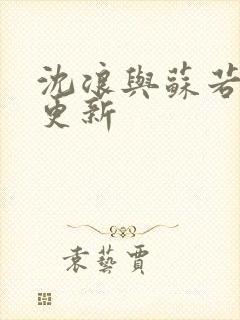 沈浪與蘇若
更新
袁藝賈